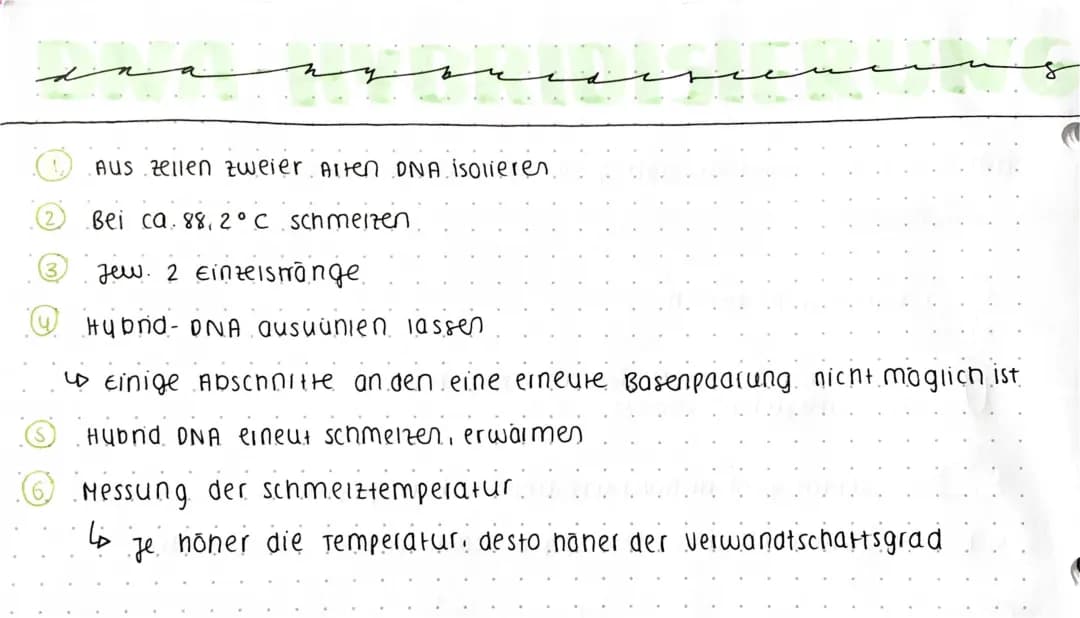 DNA HYBRIDISIERUNG
dna hybridisierung
1. Aus Zellen zweier Arten DNA isolieren
2 Bei ca. 88,2°C schmelzen
3 Jew. 2 Einzelstränge
4 Hybrid-DNA auskühlen lassen
↳ Einige Abschnitte an den eine erneute Basenpaarung nicht möglich ist
5 Hybrid DNA erneut schmelzen, erwärmen
6. Messung der Schmelztemperatur
↳ Je höher die Temperatur, desto näher der Verwandtschaftsgrad